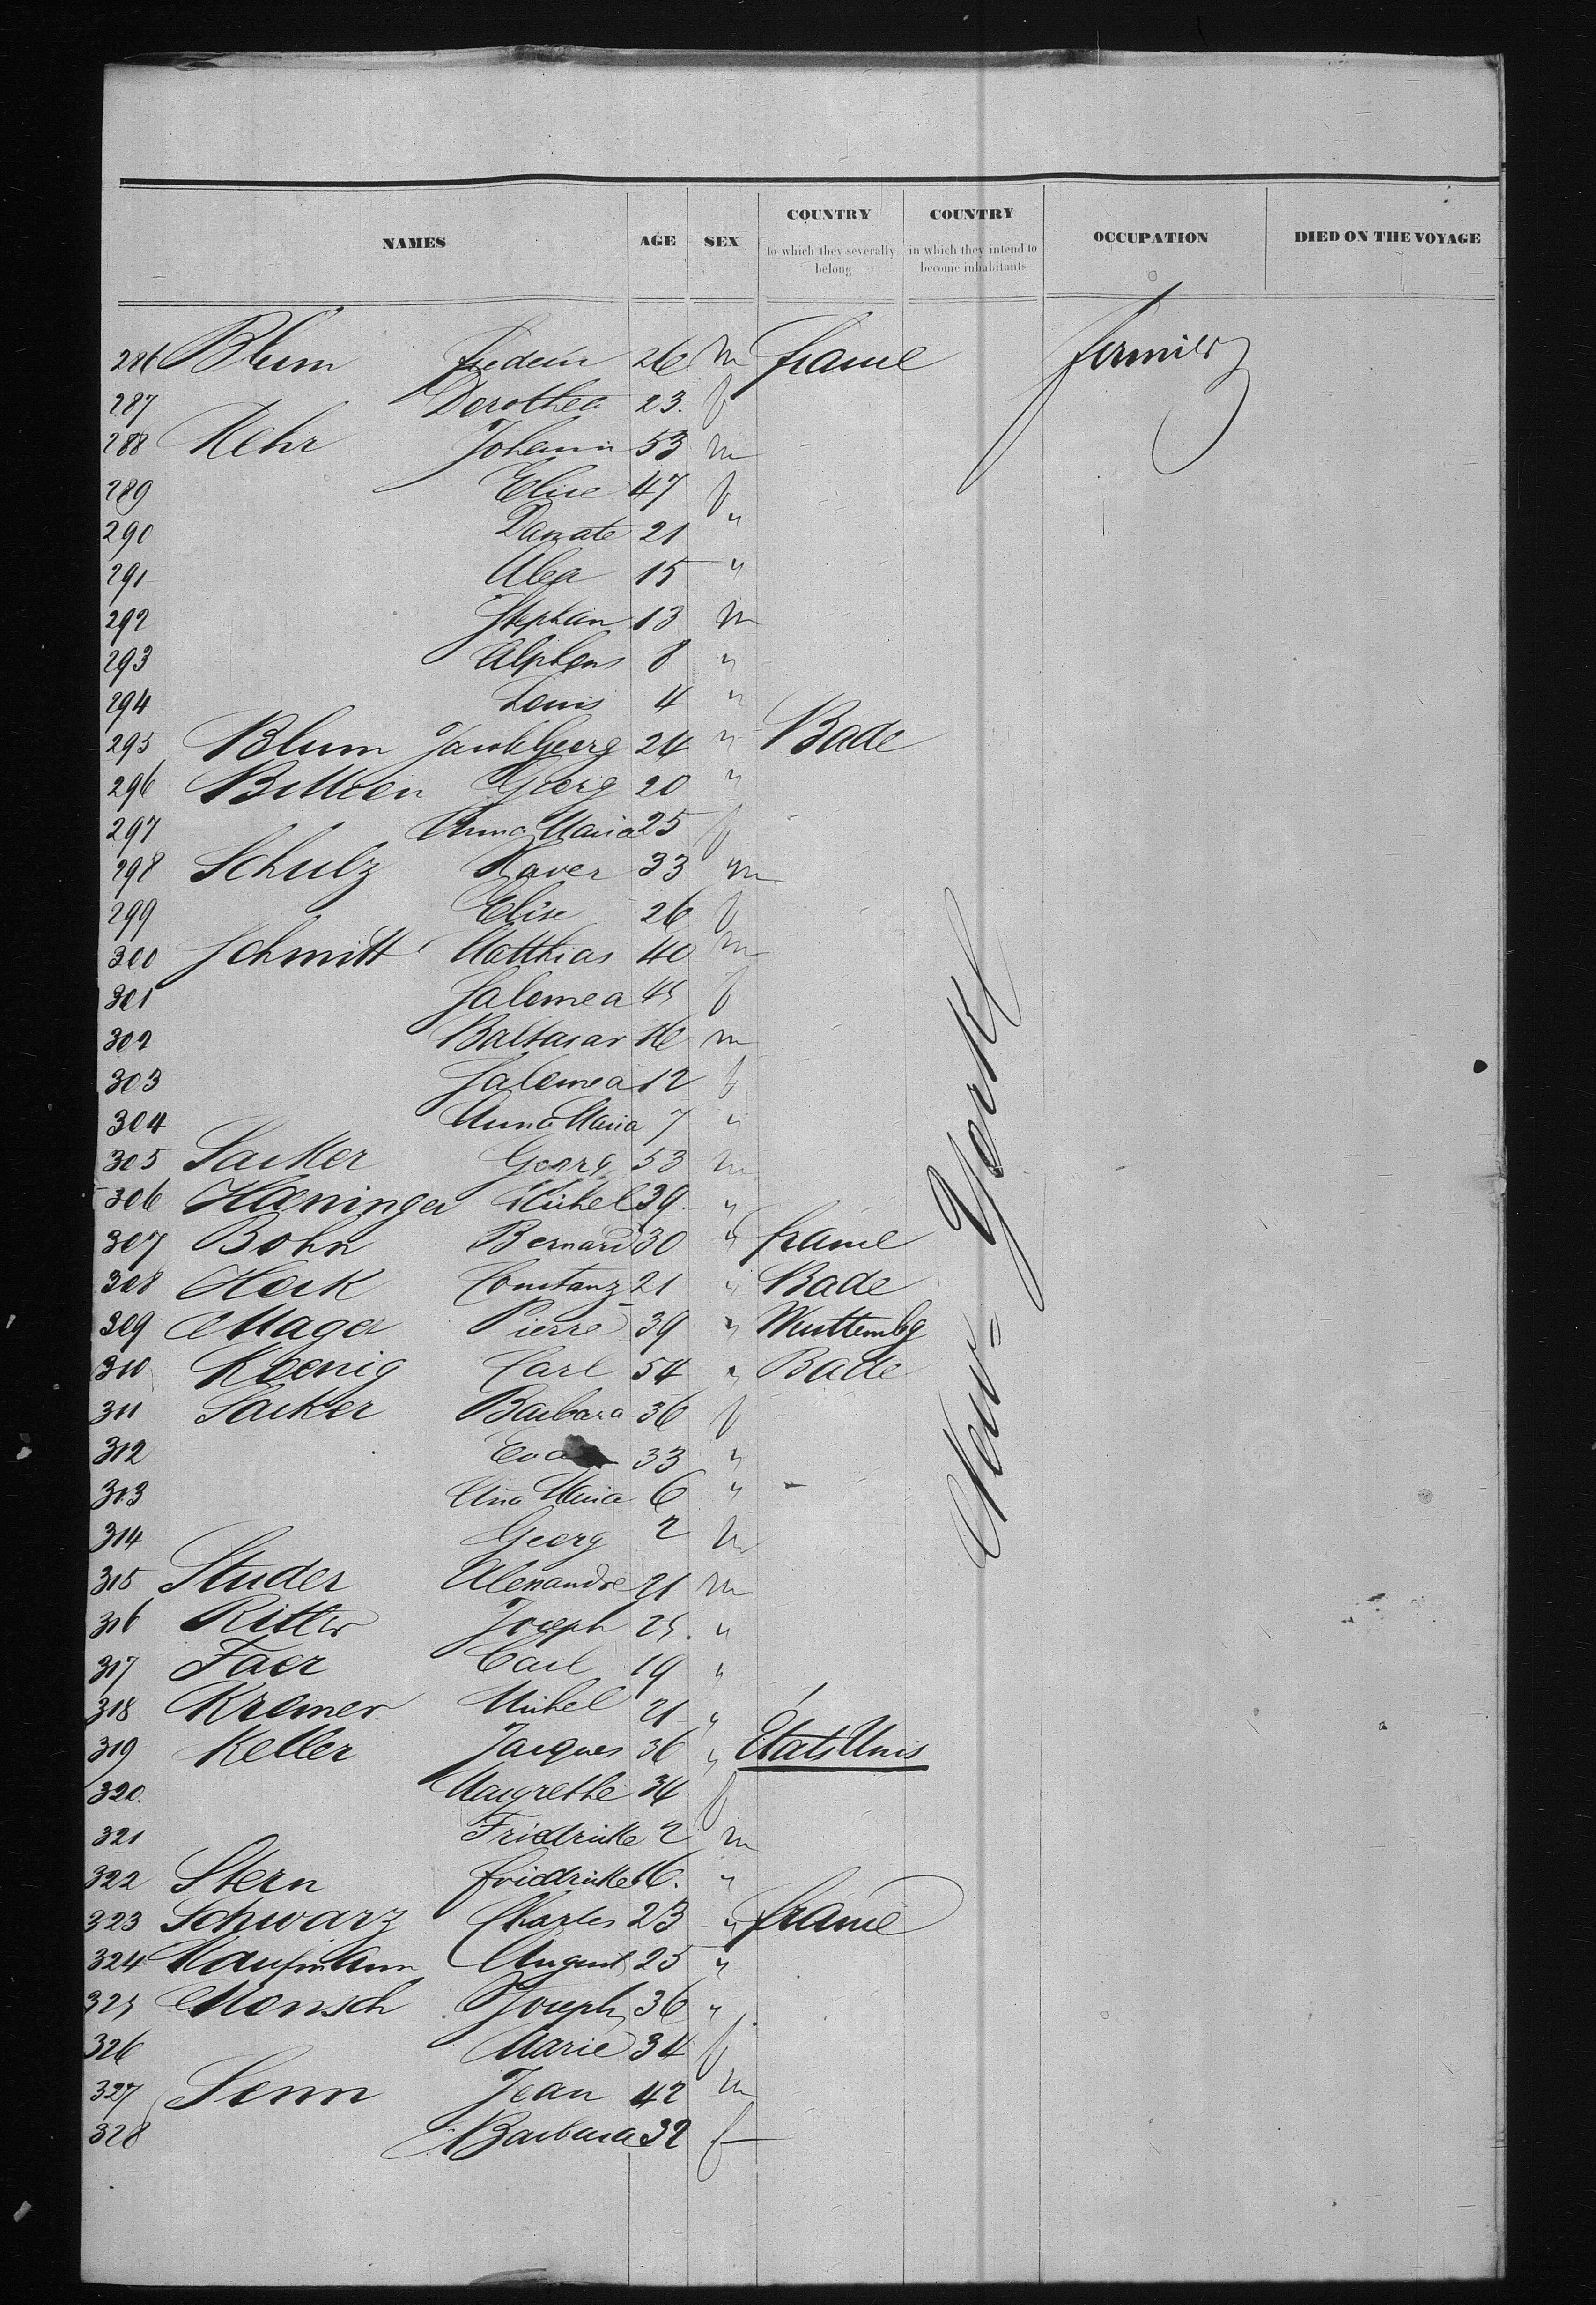 NAMES AGE SEX COUNTRY to which they severally belong COUNTRY in which they intend to become inhabitants OCCUPATION DIED ON THE VOYAGE
286 Blum 26 m france fermier
287 Dorothea 23. f
288 Kehr Johann 53 m
289 Elise 47 f
290 21 "
291 15 "
292 Stephan 13 m
293 Alphons 8 "
294 Louis 4 "
295 Blum Jacob Georg 24 " Bade
296 Georg 20 "
297 Anna Maria 25 f
298 Schulz Xaver 33 m
299 Elise 26 f
300 Schmitt Matthias 40 m
301 Salomea 45 f
302 Baltasar 16 m
303 Salomea 12 f
304 Anna Maria 7 "
305 Sacker Georg 53 m
306 Haeninger Michel 39. "
307 Bohn Bernard 30 " france
308 Constanz 21 " Bade
309 Mager Pierre 39 " Wurttembg
310 Koenig Carl 54 " Bade
311 Sacker Barbara 36 f
312 Eva 33 "
313 Aña Maria 6 "
314 Georg 2 m
315 Studer Alexandre 21 m
316 Ritter Joseph 25. "
317 Faer Carl 19 "
318 Kremer Michel 21 "
319 Keller Jacques 36 " États Unis
320. Margrethe 34 f
321 Fridricke 2 m
322 Stern fridricke 16. "
323 Schwarz Charles 23 " france
324 Kaufmann August 25 "
325 Monsch Joseph 36 "
326 Marie 34 f
327 Senn Jean 42 m
328 Barbara 32 f
New-York